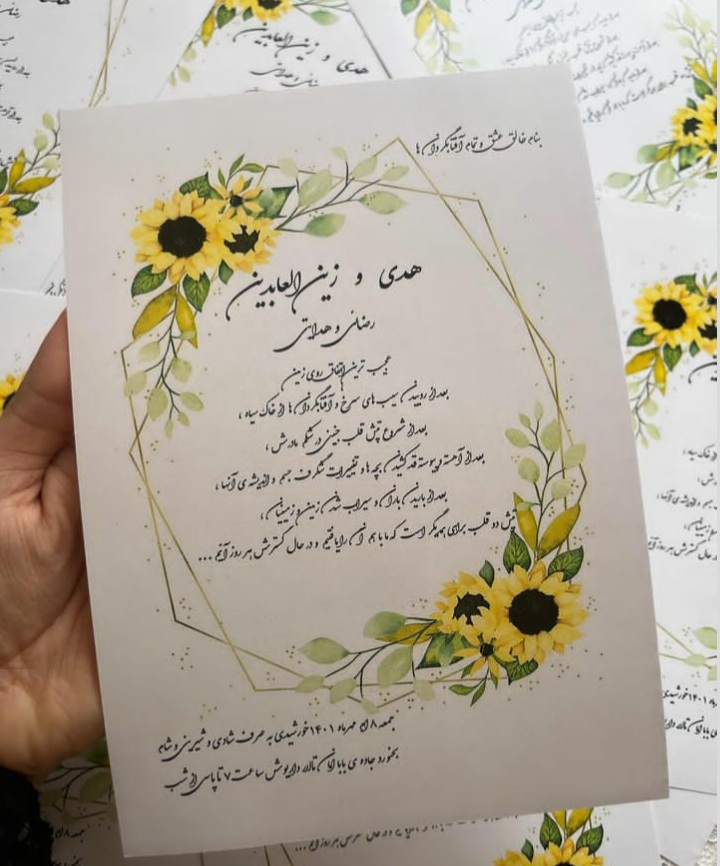 بنام خالق عشق و تمام آفتابگردان ها
هدی و زین العابدین
رضائی و هدایتی
عجیب ترین اتفاق روی زمین
بعد از روییدن سیب های سرخ و آفتابگردان ها از خاک سیاه ،
بعد از شروع تپش قلب جنینی در شکم مادرش ،
بعد از آهسته و پیوسته قد کشیدن بچه ها و تغییرات شگرف جسم و اندیشه ی آنها ،
بعد از باریدن باران و سیراب شدن زمین و زمینیان ،
تپش دو قلب برای همدیگر است که ما با هم آن را یافتیم و در حال گسترش هر روز آنیم ...
جمعه ۸ ام مهرماه ۱۴۰۱ خورشیدی به صرف شادی و شیرینی و شام
بخنورد جاده ی بابا امان تالار داریوش ساعت ۷ تا پاسی از شب